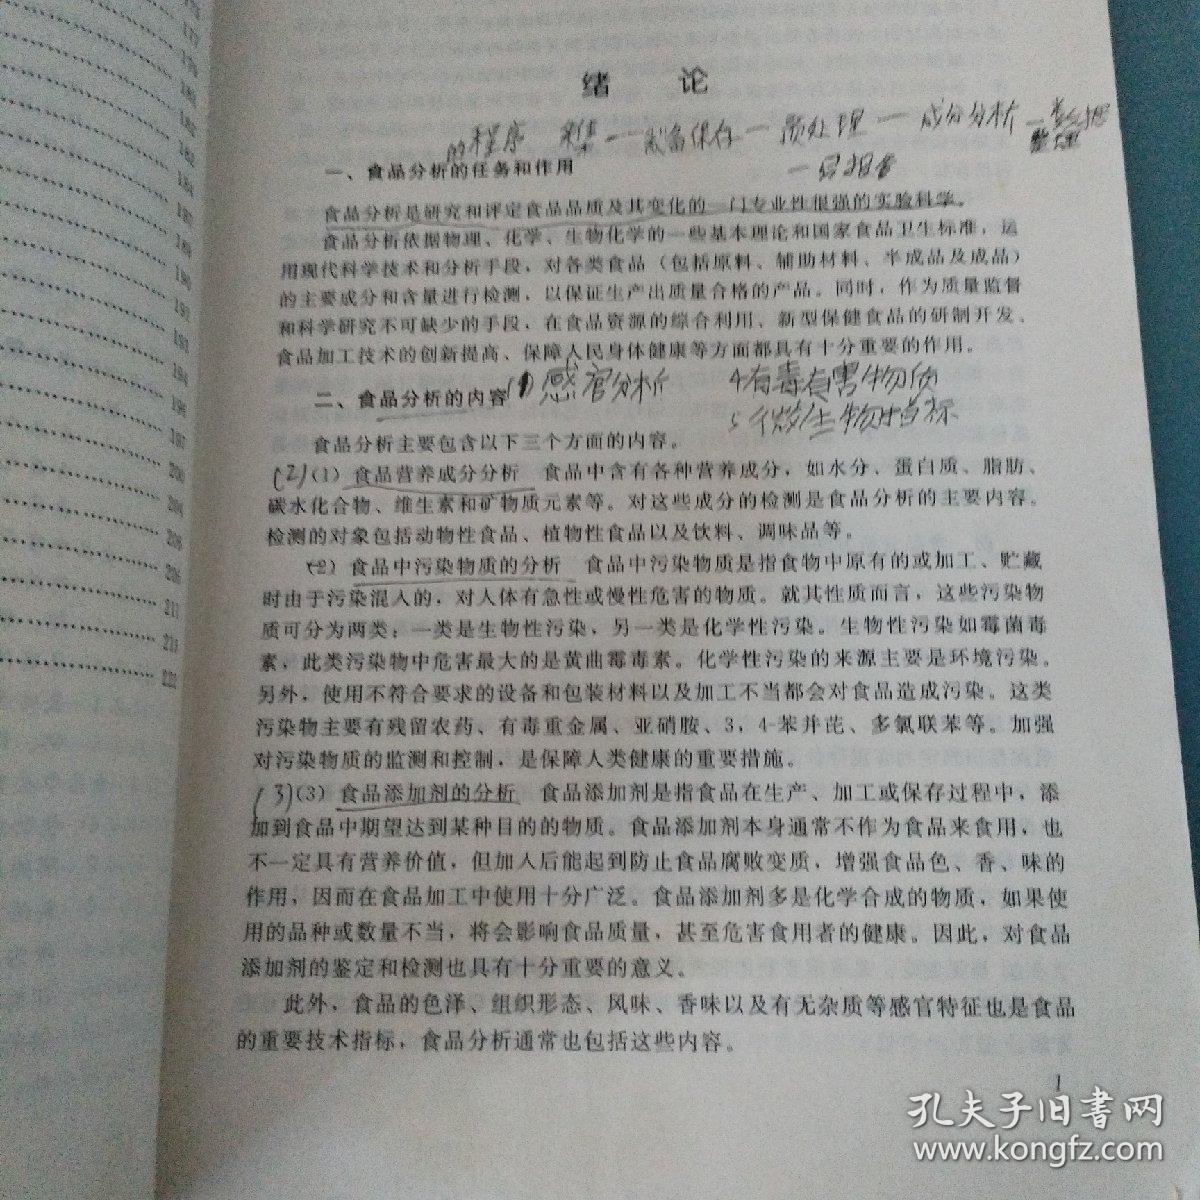 绪 论
的程序 采集一制备保存一预处理一成分分析一数据
整理
一写报告
一、食品分析的任务和作用
食品分析是研究和评定食品品质及其变化的一门专业性很强的实验科学。
食品分析依据物理、化学、生物化学的一些基本理论和国家食品卫生标准，运
用现代科学技术和分析手段，对各类食品（包括原料、辅助材料、半成品及成品）
的主要成分和含量进行检测，以保证生产出质量合格的产品。同时，作为质量监督
和科学研究不可缺少的手段，在食品资源的综合利用、新型保健食品的研制开发、
食品加工技术的创新提高、保障人民身体健康等方面都具有十分重要的作用。
二、食品分析的内容 (1)感官分析 4有毒有害物质
5微生物指标
食品分析主要包含以下三个方面的内容。
(2)(1) 食品营养成分分析 食品中含有各种营养成分，如水分、蛋白质、脂肪、
碳水化合物、维生素和矿物质元素等。对这些成分的检测是食品分析的主要内容。
检测的对象包括动物性食品、植物性食品以及饮料、调味品等。
(2) 食品中污染物质的分析 食品中污染物质是指食物中原有的或加工、贮藏
时由于污染混入的，对人体有急性或慢性危害的物质。就其性质而言，这些污染物
质可分为两类：一类是生物性污染，另一类是化学性污染。生物性污染如霉菌毒
素，此类污染物中危害最大的是黄曲霉毒素。化学性污染的来源主要是环境污染。
另外，使用不符合要求的设备和包装材料以及加工不当都会对食品造成污染。这类
污染物主要有残留农药、有毒重金属、亚硝胺、3，4-苯并芘、多氯联苯等。加强
对污染物质的监测和控制，是保障人类健康的重要措施。
(3)(3) 食品添加剂的分析 食品添加剂是指食品在生产、加工或保存过程中，添
加到食品中期望达到某种目的的物质。食品添加剂本身通常不作为食品来食用，也
不一定具有营养价值，但加入后能起到防止食品腐败变质，增强食品色、香、味的
作用，因而在食品加工中使用十分广泛。食品添加剂多是化学合成的物质，如果使
用的品种或数量不当，将会影响食品质量，甚至危害食用者的健康。因此，对食品
添加剂的鉴定和检测也具有十分重要的意义。
此外，食品的色泽、组织形态、风味、香味以及有无杂质等感官特征也是食品
的重要技术指标，食品分析通常也包括这些内容。
1
孔夫子旧书网
www.kongfz.com